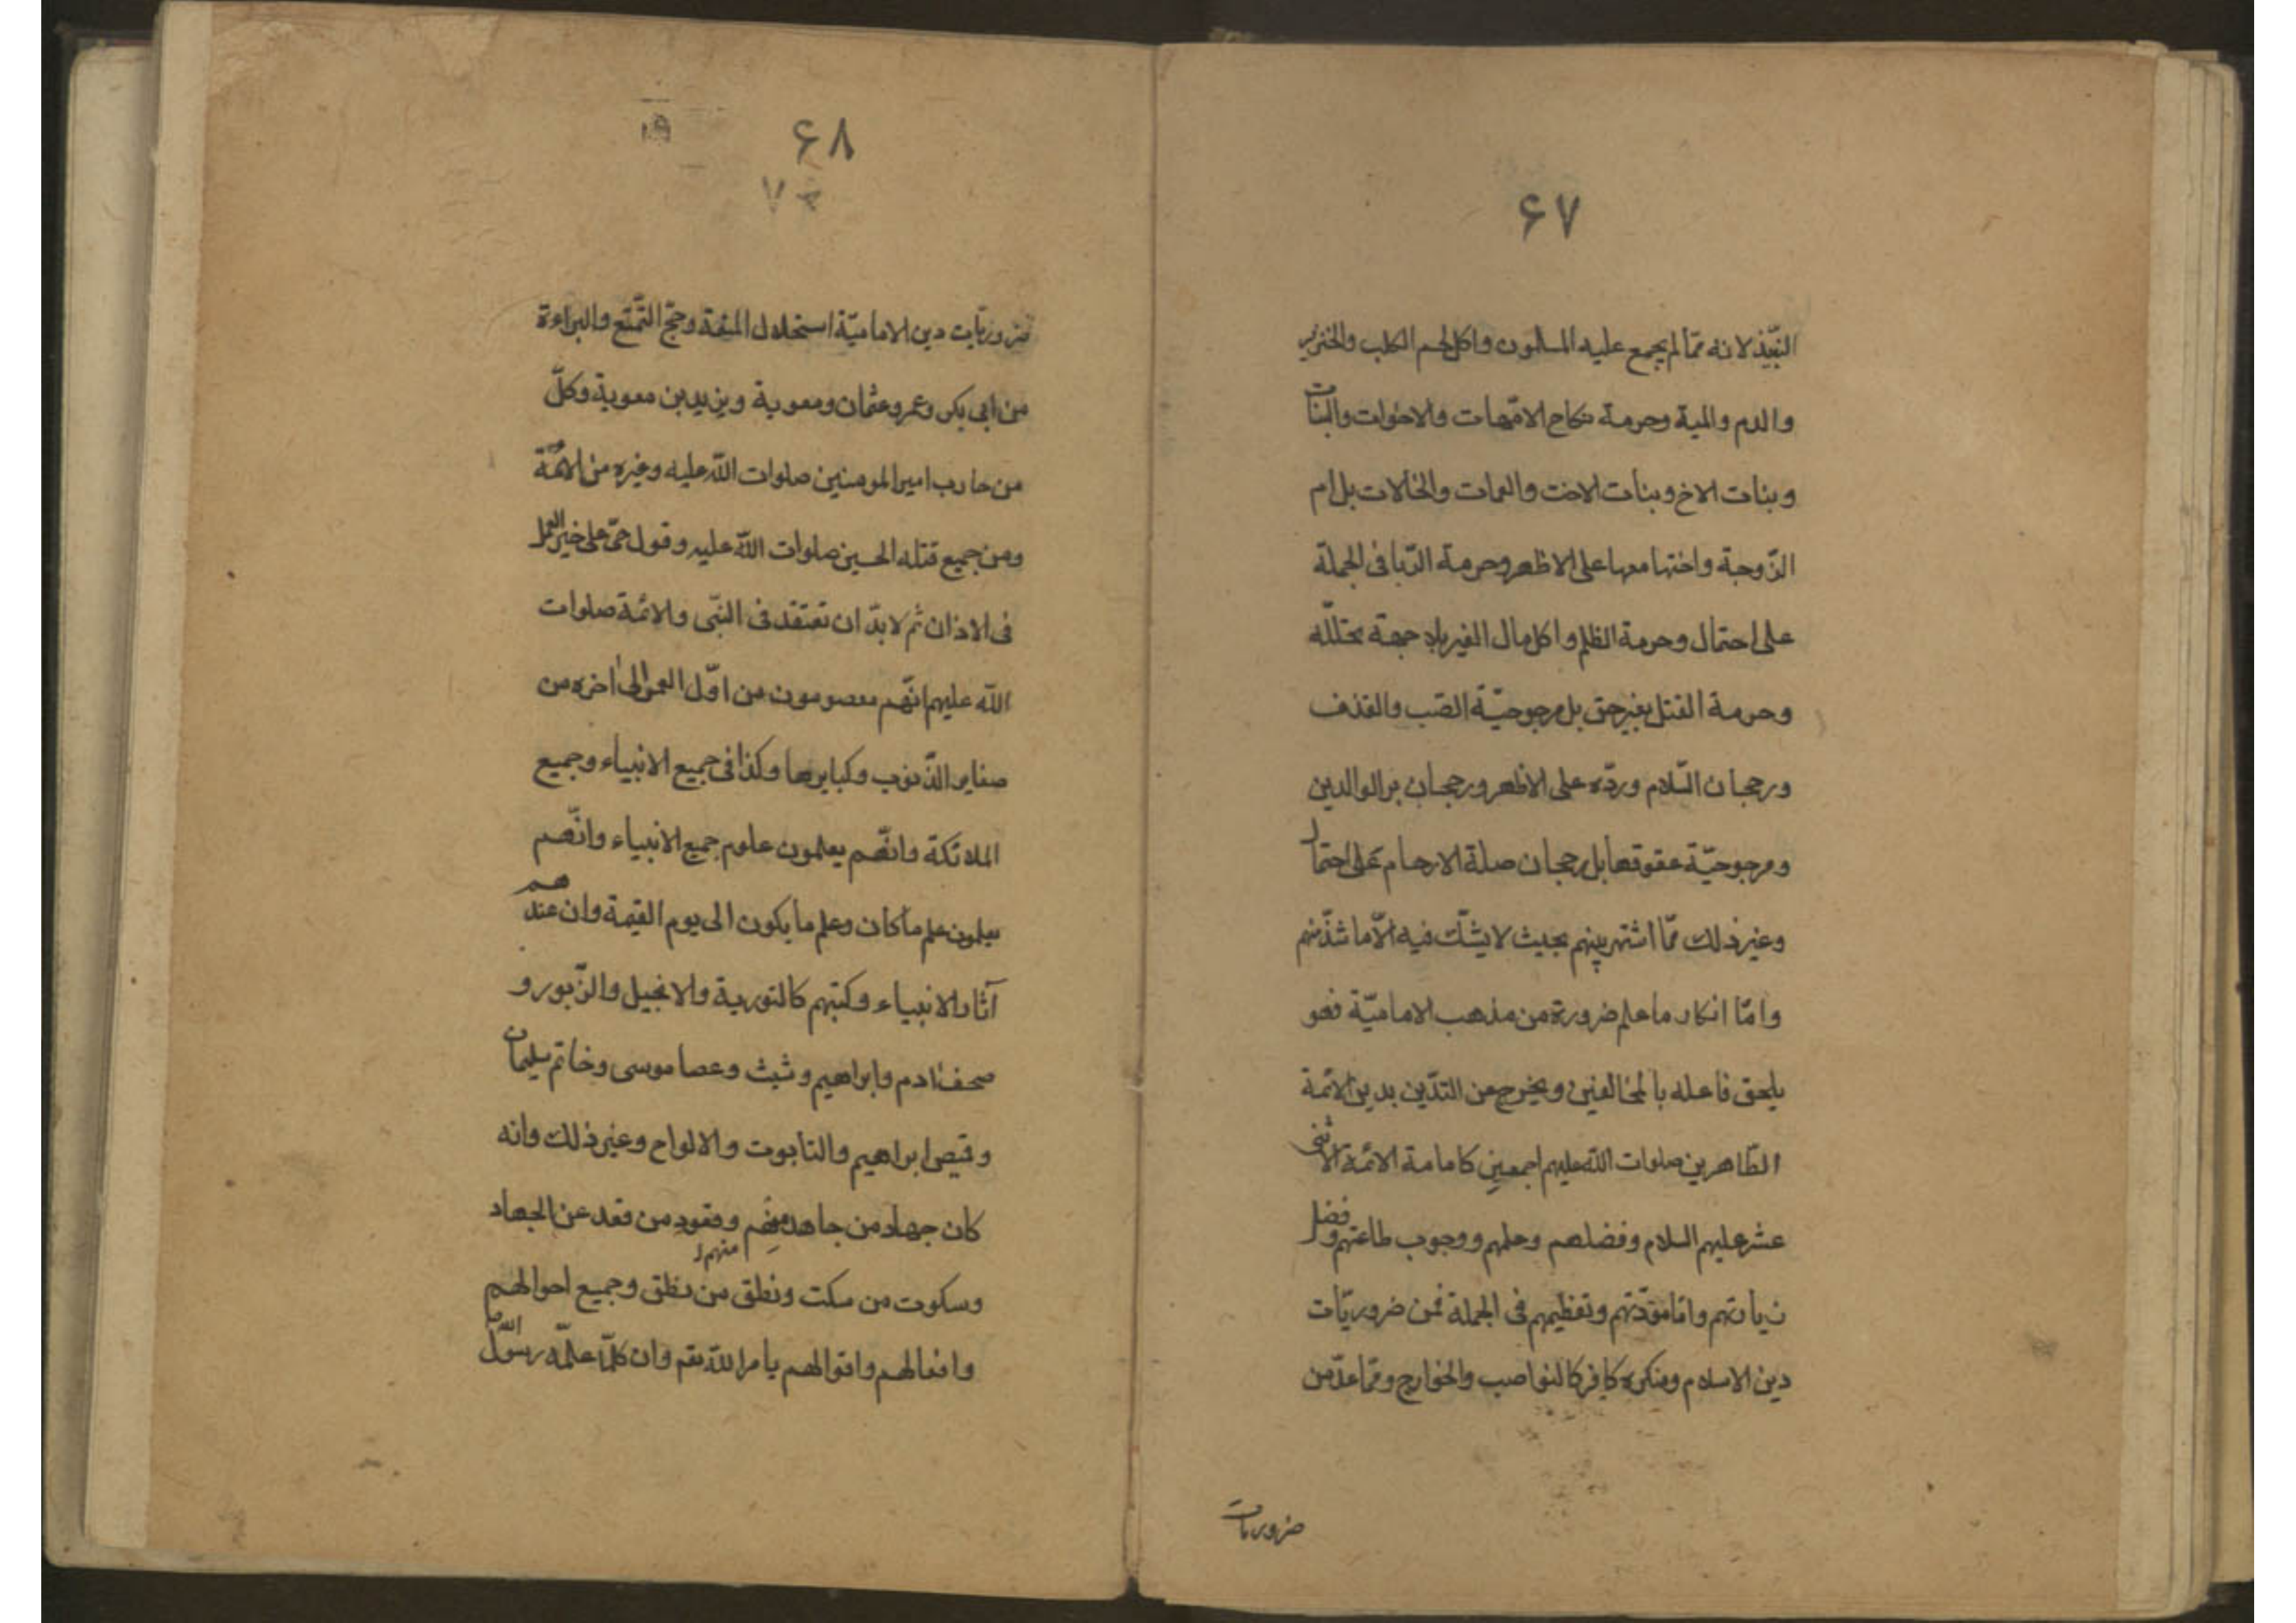 ۶۷
النبیذ لانه ممّا لم یجمع علیه المسلمون واکل لحم الکلب والخنزیر
والدم والمیة وحرمة نکاح الامّهات والاخوات والبنات
وبنات الاخ وبنات الاخت والعمات والخالات بل ام
الزّوجة واختها معها علی الاظهر وحرمة الرّبا فی الجملة
علی احتمال وحرمة الظلم واکل مال الغیر بلا جهة تحلّله
وحرمة القتل بغیر حق بل مرجوحیّة السّب والقذف
ورجحان السّلام وردّه علی الاظهر ورجحان بر الوالدین
ومرجوحیّة عقوقهما بل رجحان صلة الارحام علی احتمال
وغیر ذلک ممّا اشتهر بینهم بحیث لا یشکّ فیه الّا ما شذّ منهم
وامّا انکار ما علم ضرورة من مذهب الامامیّة فهو
یلحق فاعله بالمخالفین ویخرج عن التدیّن بدین الائمّة
الطّاهرین صلوات اللّه علیهم اجمعین کامامة الائمّة الاثنی
عشر علیهم السلام وفضلهم وعلمهم ووجوب طاعتهم وفضل
زیارتهم وامّا مودّتهم وتعظیمهم فی الجملة فمن ضروریّات
دین الاسلام ومنکره کافر کالنواصب والخوارج وممّا عدّ من
ضروریات
۶۸
ضروریّات دین الامامیّة استحلال المتعة وحجّ التّمتّع والبراءة
من ابی بکر وعمر وعثمان ومعویة ویزید بن معویة وکلّ
من حارب امیر المومنین صلوات اللّه علیه وغیره من الائمّة
ومن جمیع قتله الحسین صلوات اللّه علیه وقول حیّ علی خیر العمل
فی الاذان ثم لا بدّ ان تعتقد فی النبّی والائمّة صلوات
اللّه علیهم انّهم معصومون من اوّل العمر الی اخره من
صغایر الذّنوب وکبایرها وکذا فی جمیع الانبیاء وجمیع
الملائکة وانّهم یعلمون علوم جمیع الانبیاء وانّهم
یعلمون علم ما کان وعلم ما یکون الی یوم القیمة وان عندهم
آثار الانبیاء وکتبهم کالتوریة والانجیل والزّبور و
صحف ادم وابراهیم وشیث وعصا موسی وخاتم سلیمان
وقمیص ابراهیم والتابوت والالواح وغیر ذلک وانه
کان جهاد من جاهد منهم وقعود من قعد عن الجهاد
وسکوت من سکت ونطق من نطق منهم وجمیع احوالهم
وافعالهم واقوالهم بامر اللّه تعم وان کلّما علمّه رسول اللّه